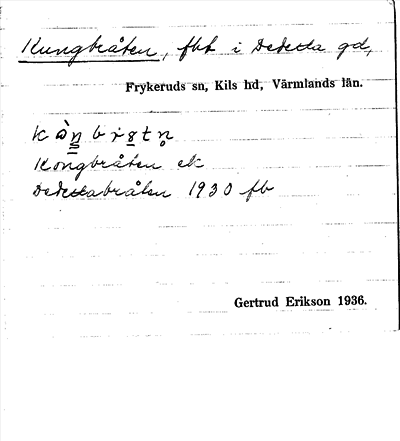 Kungbråten, fbt i Dedesta gd,
Frykeruds sn, Kils hd, Värmlands län.
Kongbråten ek
bråten 1930 fb
Gertrud Erikson 1936.